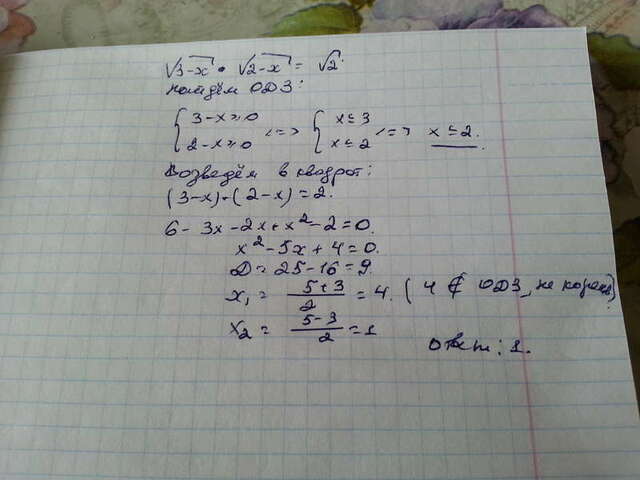 √3-x · √2-x = √2.
Найдём ОДЗ:
{ 3-x≥0 <=> { x≤3 <=> x≤2.
2-x≥0 x≤2
Возведём в квадрат:
(3-x)·(2-x)=2.
6-3x-2x+x²-2=0.
x²-5x+4=0.
D=25-16=9.
x₁= (5+3)/2 =4. (4 ∉ ОДЗ, не корень)
x₂= (5-3)/2 =1
Ответ: 1.